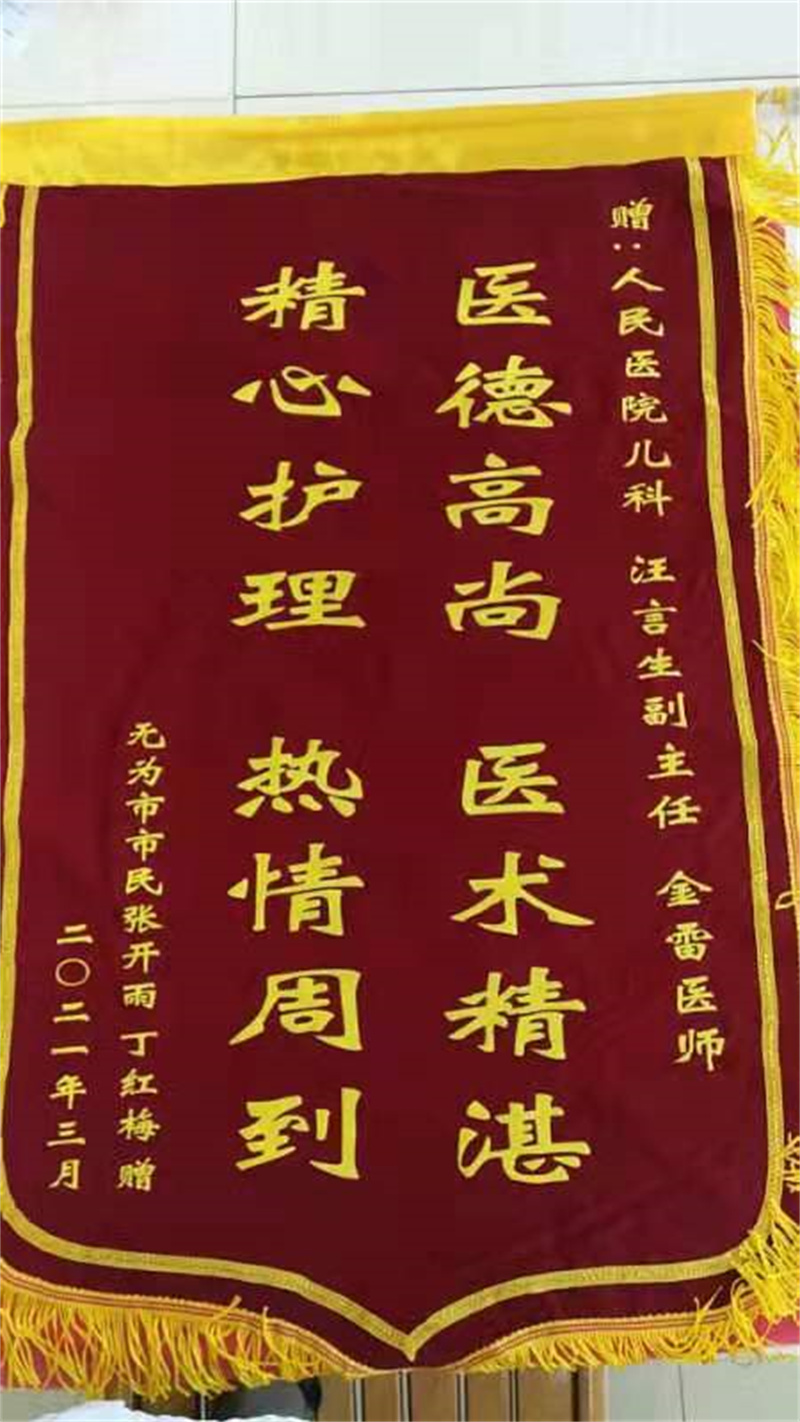 赠:人民医院儿科 汪言生副主任 金雷医师
医德高尚 医术精湛
精心护理 热情周到
无为市市民张开雨 丁红梅 赠
二〇二一年三月